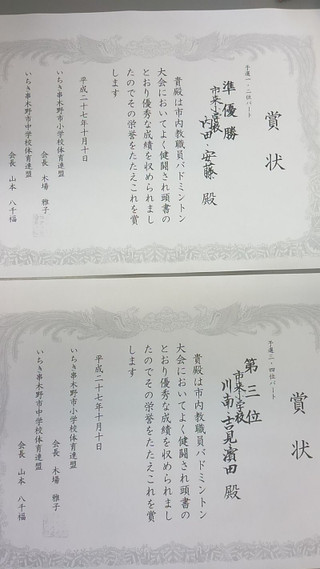 賞状
予選一・二位パート
準優勝
市来小学校
内田・安藤 殿
貴殿は市内教職員バドミントン
大会においてよく健闘され頭書の
とおり優秀な成績を収められまし
たのでその栄誉をたたえこれを賞
します
平成二十七年十月十日
いちき串木野市小学校体育連盟
会長 木場 雅子
いちき串木野市中学校体育連盟
会長 山本 八千福
賞状
予選三・四位パート
第三位
市来小学校
川南・吉見 濱田 殿
貴殿は市内教職員バドミントン
大会においてよく健闘され頭書の
とおり優秀な成績を収められまし
たのでその栄誉をたたえこれを賞
します
平成二十七年十月十日
いちき串木野市小学校体育連盟
会長 木場 雅子
いちき串木野市中学校体育連盟
会長 山本 八千福